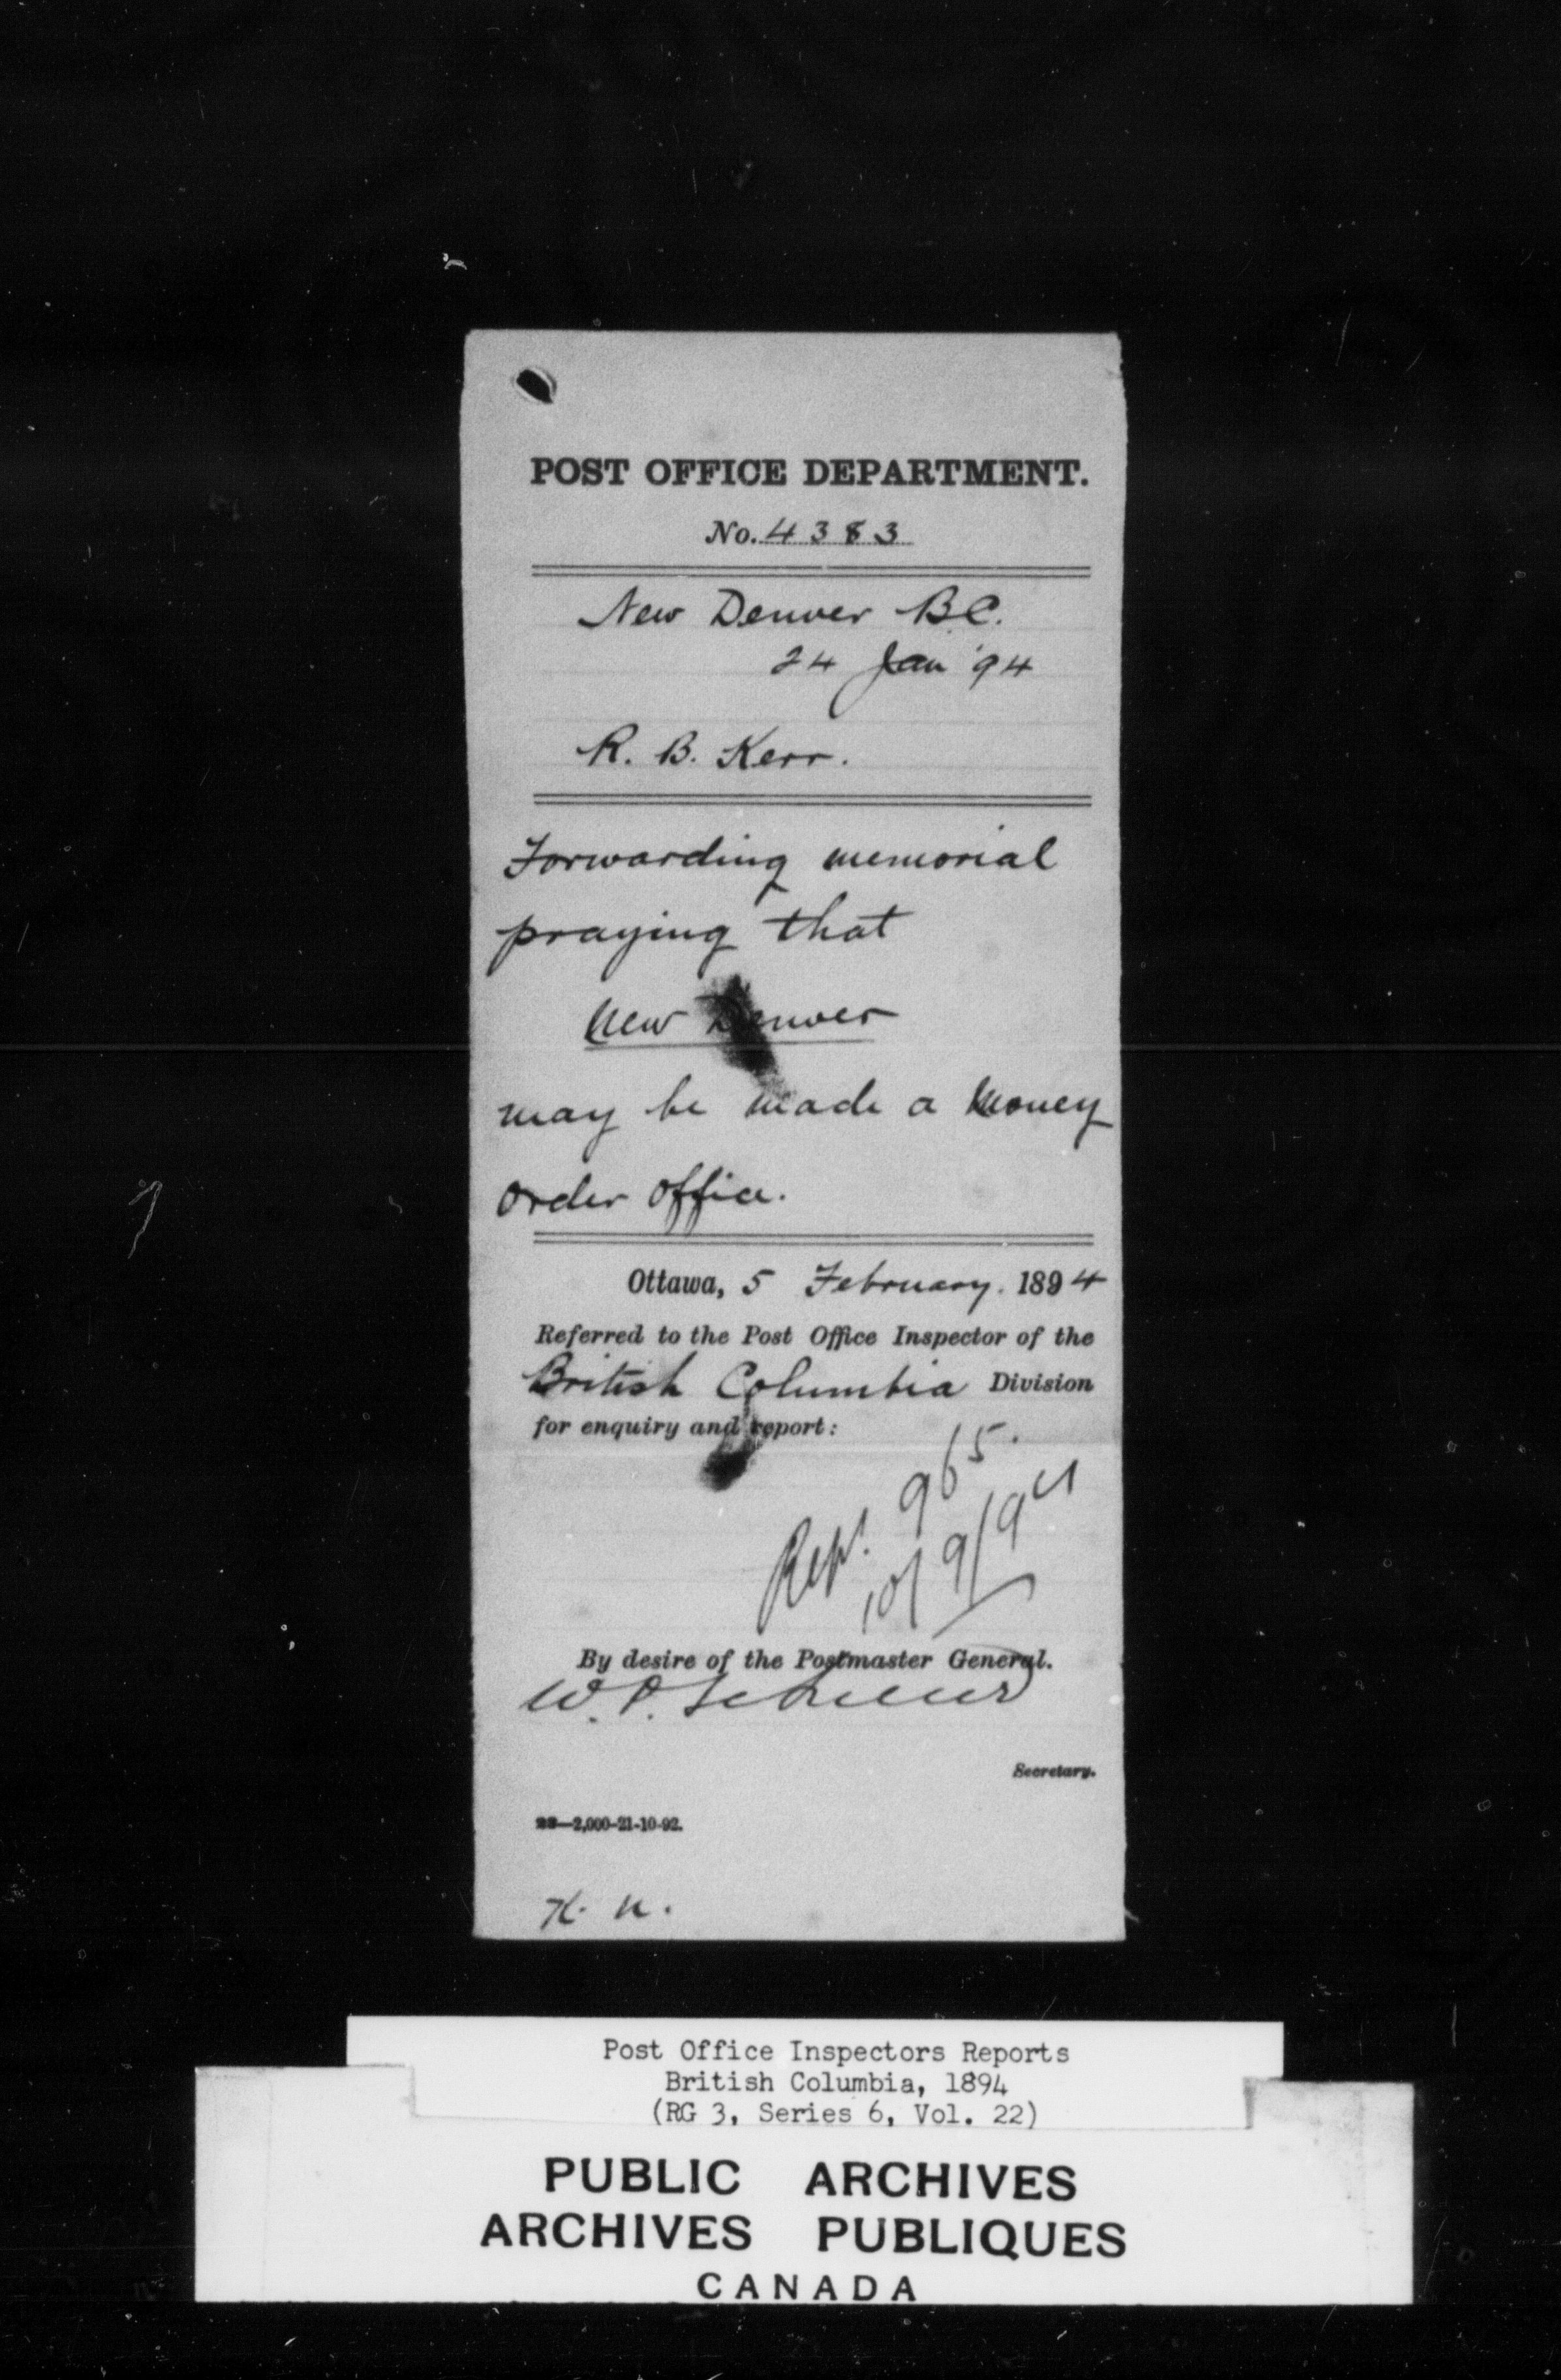 POST OFFICE DEPARTMENT.
No. 4383
New Denver B.C.
24 Jan '94
R. B. Kerr.
Forwarding memorial
praying that
New Denver
may be made a Money
Order Office.
Ottawa, 5 February. 1894
Referred to the Post Office Inspector of the
British Columbia Division
for enquiry and report:
Rept. 965.
10/9/94
By desire of the Postmaster General.
W. P.
Secretary.
2,000-21-10-92.
Post Office Inspectors Reports
British Columbia, 1894
(RG 3, Series 6, Vol. 22)
PUBLIC ARCHIVES
ARCHIVES PUBLIQUES
CANADA